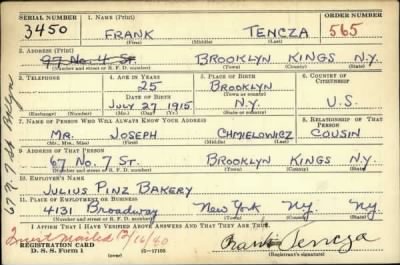 SERIAL NUMBER 1. NAME (Print) ORDER NUMBER
3450 FRANK TENCZA 565
(First) (Middle) (Last)
2. ADDRESS (Print)
97 No. 4 St. BROOKLYN KINGS N.Y.
(Number and street or R. F. D. number) (Town) (County) (State)
3. TELEPHONE 4. AGE IN YEARS 5. PLACE OF BIRTH 6. COUNTRY OF CITIZENSHIP
25 BROOKLYN
DATE OF BIRTH (Town or county)
JULY 27 1915 N.Y. U.S.
(Exchange) (Number) (Mo.) (Day) (Yr.) (State or country)
7. NAME OF PERSON WHO WILL ALWAYS KNOW YOUR ADDRESS 8. RELATIONSHIP OF THAT PERSON
MR. JOSEPH CHMIELOWICZ COUSIN
(Mr., Mrs., Miss) (First) (Middle) (Last)
9. ADDRESS OF THAT PERSON
67 NO. 7 ST. BROOKLYN KINGS N.Y.
(Number and street or R. F. D. number) (Town) (County) (State)
10. EMPLOYER'S NAME
JULIUS PINZ BAKERY
11. PLACE OF EMPLOYMENT OR BUSINESS
4131 Broadway New York NY. NY.
(Number and street or R. F. D. number) (Town) (County) (State)
I AFFIRM THAT I HAVE VERIFIED ABOVE ANSWERS AND THAT THEY ARE TRUE.
Quest Mailed 12/16/40 Frank Tencza
REGISTRATION CARD
D. S. S. Form 1 16-17105 (Registrant's signature)
67 N. 7 St Bklyn